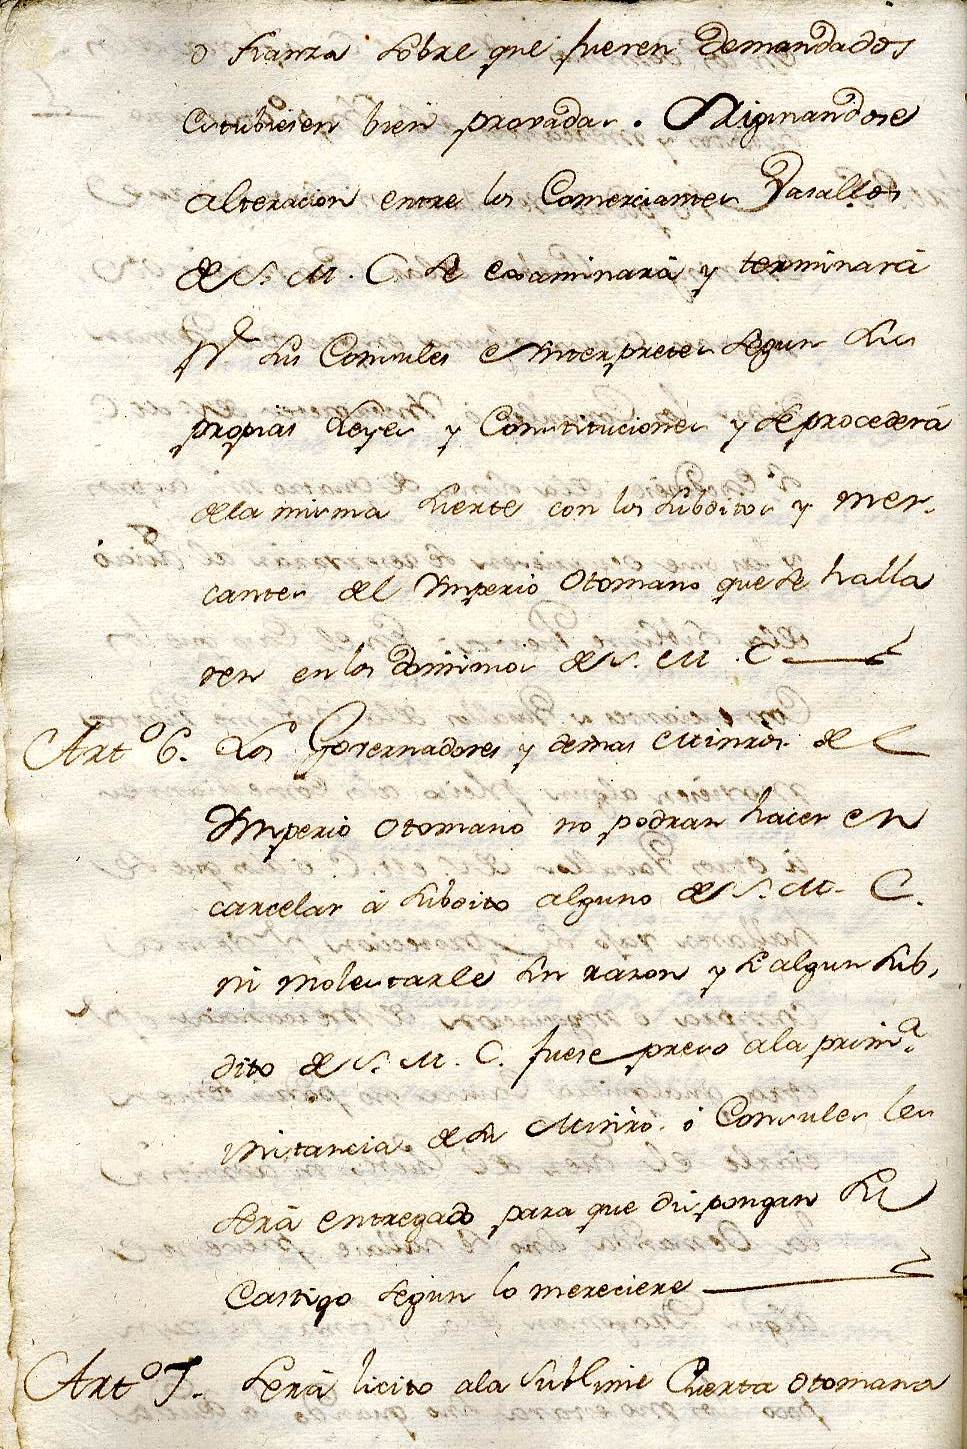 o fianza sobre que fueren demandados
estubiesen bien provadas. Originandose
altercacion entre los Comerciantes Vasallos
de S. M. C. se examinará y terminará
pr. sus Consules e Interpretes segun sus
propias Leyes y Constituciones y se procederá
dela misma suerte con los subditos y mer-
cantes del Imperio Otomano que se halla
ren en los dominios de S. M. C.
Arto. 6. Los Governadores y demas Minros. del
Imperio Otomano no podran hacer en
carcelar á subdito alguno de S. M. C.
ni molestarle sin razon y si algun sub,
dito de S. M. C. fuese preso ala prima.
instancia de su Minro. ó Consules les
será entregado para que dispongan su
Castigo segun lo mereciere
Arto. 7. Será licito ala sublime Puerta Otomana